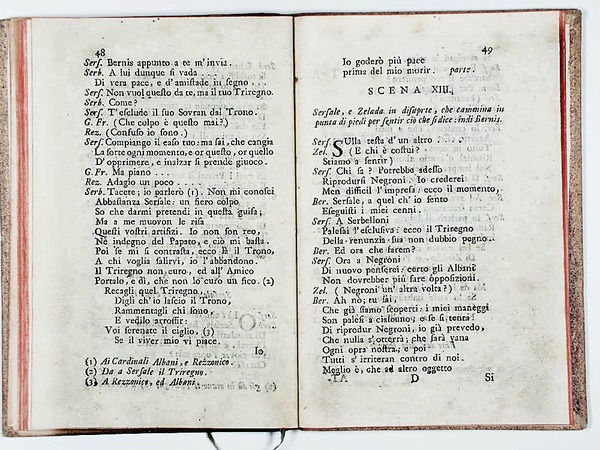 48
Sers. Bernis appunto a te m'invia.
Serb. A lui dunque si vada . . . .
Di vera pace, e d'amistade in segno . . .
Sers. Non vuol questo da te, ma il tuo Triregno.
Serb. Come?
Sers. T'esclude il suo Sovran dal Trono.
G. Fr. (Che colpo è questo mai?)
Rez. (Confuso io sono.)
Sers. Compiango il caso tuo: ma sai, che cangia
La sorte ogni momento, e or questo, or quello
D'opprimere, e inalzar si prende giuoco.
G. Fr. Ma piano . . .
Rez. Adagio un poco . . . .
Serb. Tacete; io parlerò (1). Non mi conosci
Abbastanza Sersale: un fiero colpo
So che darmi pretendi in questa guisa;
Ma a me muovon le risa
Questi vostri artifizi. Io non son reo,
Nè indegno del Papato, e ciò mi basta.
Poi se mi si contrasta, ecco là il Trono,
A chi voglia salirvi, io l'abbandono.
Il Triregno non curo, ed all' Amico
Portalo, e dì, che non lo curo un fico. (2)
Recagli quel Triregno,
Digli ch'io lascio il Trono,
Rammentagli chi sono,
E vedilo arrossir:
Voi serenate il ciglio, (3)
Se il viver mio vi piace.
Io,
(1) Ai Cardinali Albani, e Rezzonico.
(2) Da a Sersale il Triregno.
(3) A Rezzonico, ed Albani.
49
Io goderò più pace
prima del mio morir. parte.
SCENA XIII.
Sersale, e Zelada in disparte, che cammina in
punta di piedi per sentir ciò che si dice: indi Bernis.
Sers. SUlla testa d'un altro . . . .
Zel. (E chi è costui?
Stiamo a sentir)
Sers. Chi sa? Potrebbe adesso
Riprodursi Negroni. Io crederei
Men difficil l'impresa: ecco il momento,
Ber. Sersale, a quel ch'io sento
Eseguisti i miei cenni.
Sers. A Serbelloni
Palesai l'esclusiva: ecco il Triregno
Della renunzia sua non dubbio pegno.
Ber. Ed ora che farem?
Sers. Ora a Negroni
Di nuovo penserei: certo gli Albani
Non dovrebber più fare opposizioni.
Zel. (Negroni un' altra volta?)
Ber. Ah nò; tu sai,
Che già siamo scoperti: i miei maneggi
Son palesi a ciascuno; e se si tenta
Di riprodur Negroni, io già prevedo,
Che nulla s'otterrà; che sarà vana
Ogni opra nostra; e più
Tutti s'irriteran contro di noi.
Meglio è, che ad altro oggetto
D
Si